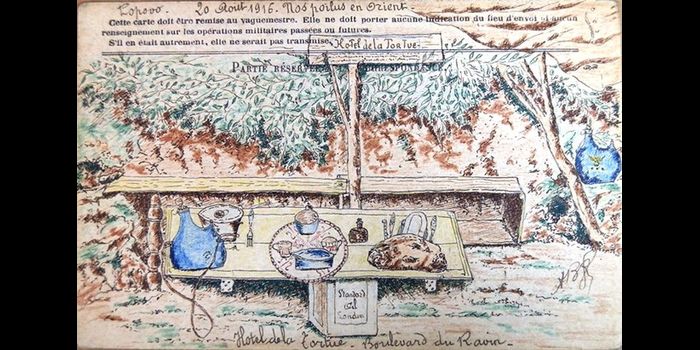 Popovo. 20 Août 1916. Nos poilus en Orient.
Cette carte doit être remise au vaguemestre. Elle ne doit porter aucune indication du lieu d'envoi ni aucun
renseignement sur les opérations militaires passées ou futures.
S'il en était autrement, elle ne serait pas transmise.
Hotel de la Tortue
PARTIE RÉSERVÉE CORRESPONDANCE
Standard
Oil
London
Hotel de la Tortue - Boulevard du Ravin